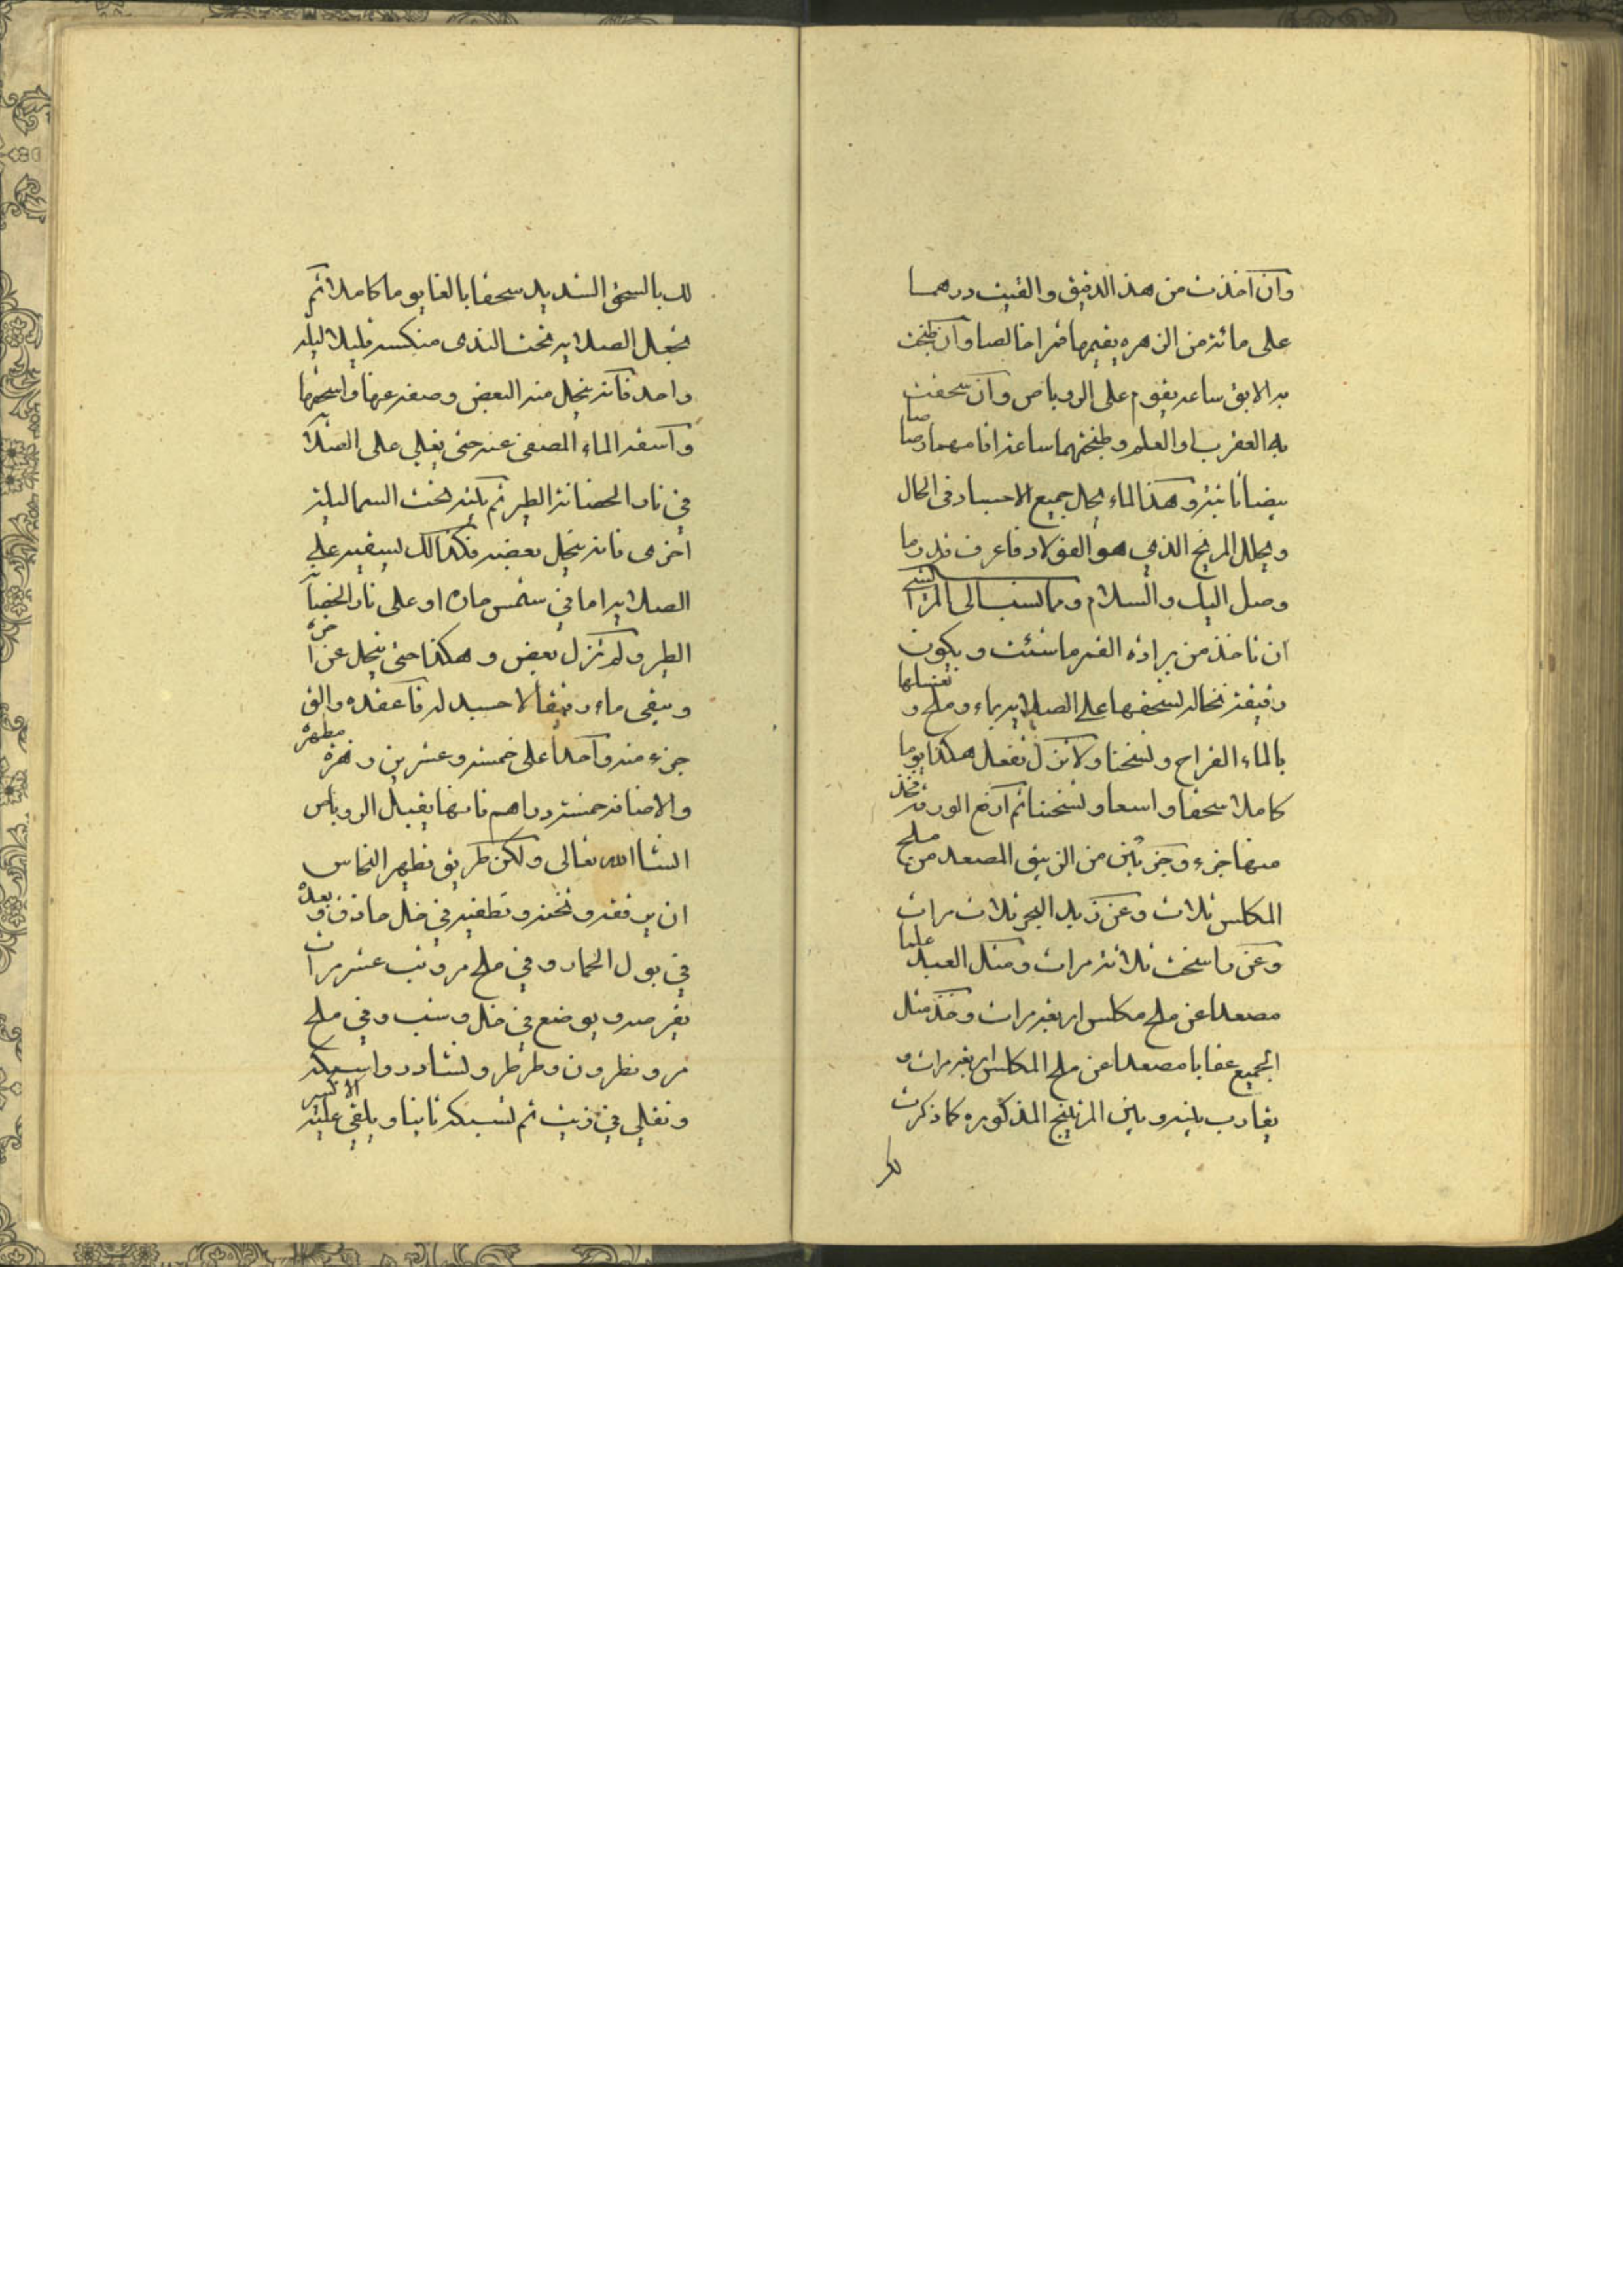 وان اخذت من هذا الدقيق والقيت درهما
على مائة من الزهره يقيمها قمرا خالصا وان طبخت
به الابق ساعه يقوم على الروباص وان سحقت
به العقرب او العلم وطبختهما ساعة اقامهما رصاصا
بيضا ثابتة وهذا الماء يحل جميع الاجساد في الحال
ويحلل المريخ الذي هو الفولاد فاعرف قدر ما
وصل اليك والسلام ومما نسب الى المراكشي
ان تاخذ من براده القمر ما شئت ويكون
دقيقة نخاله تسحقها على الصلايه بماء وملح وتغسلها
بالماء القراح وتسخنا ولا تزل تفعل هكذا يوما
كاملا سحقا واسعا وتسخنا ثم ارفع الورقه فخذ
منها جزء وجزئين من الزيبق المصعد من ملح
المكلس ثلاث وعن زبد البحر ثلاث مرات
وعن راسخت ثلاثة مرات ومثل العبد علما
مصعدا عن ملح مكلس اربعة مرات وخذ مثل
الجميع عقابا مصعدا عن ملح المكلس اربعة مرات و
يقارب بينه وبين المزنيخ المذكوره كما ذكرت
لك
لك بالسحق الشديد سحقا بالغا يوما كاملا ثم
تجعل الصلايه تحت الندى منكسه قليلا ليله
واحده فانه ينحل منه البعض وصفه عنها واسحقها
واسقه الماء المصفى عنه حتى يغلي على الصلايه
في نار الحضانة الطير ثم بيته تحت السما ليلة
اخرى فانه ينحل بعضه فكذالك تسقيه على
الصلايه اما في شمس حاره او على نار الحضانة
الطير ولم تزل بعض وهكذا حتى ينحل عن اخره
ويبقى ماء رقيقا لا جسد له فاعقده والق
جزء منه واحدا على خمسه وعشرين زهرة مطهره
والاضافة خمسة دراهم فانها يقبل الروباص
انشا الله تعالى ولكن طريق تطهير النحاس
ان يرققه وتحميه وتطفيه في خل حاذق وبعده
في بول الحمار وفي ملح مر وشب عشر مرات
يقرصه ويوضع في خل وشب وفي ملح
مر ونطرون وطرطر ونشادر واسبكه
وتغلي في زيت ثم تسبكه ثانيا ويلقي عليه الاكسير